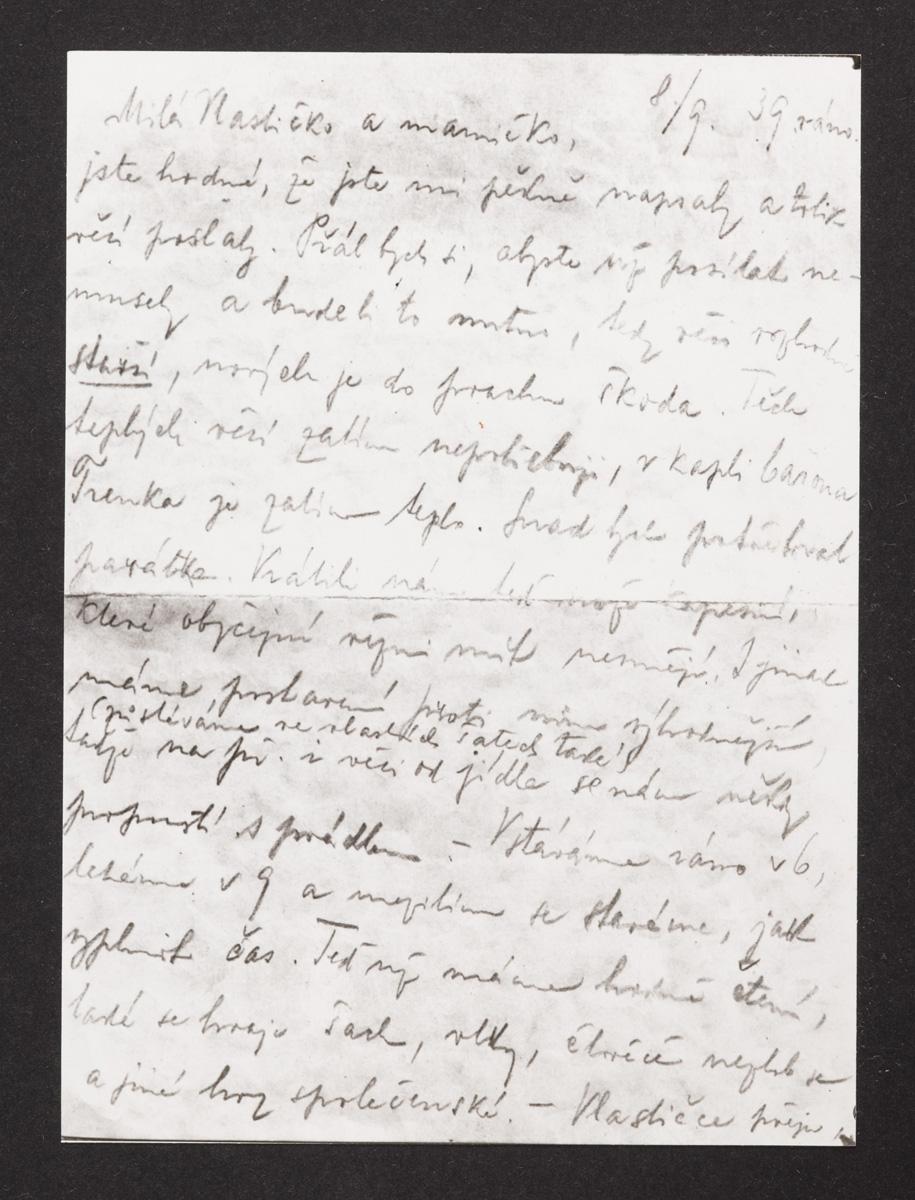 8/9. 39 ráno.
Milá Vlastičko a mamičko,
jste hodné, že jste mi pěkně napsaly a tolik
věcí poslaly. Přál bych si, abyste víc posílat ne-
musely a bude-li to nutno, tedy věci rozhodně
starší, nových je do prachu škoda. Těch
teplých věcí zatím nepotřebuji, v kapli barona
Trenka je zatím teplo. Snad bych potřeboval
parátka. Vrátili nám teď
které obyčejní vězni mít nesmějí. I jinak
máme postavení proti nim výhodnější,
(zůstáváme ve vlastních šatech také)
takže na př. i věci od jídla se nám někdy
propustí s prádlem. - Vstáváme ráno v 6,
leháme v 9 a mezitím se staráme, jak
vyplnit čas. Teď již máme hodně čtení,
také se hraje šach, vlky, člověče nezlob se
a jiné hry společenské. - Vlastičce přeju,